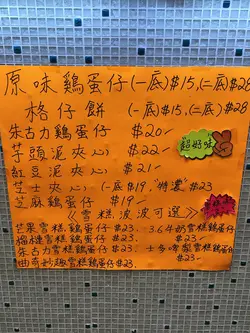 原味雞蛋仔(一底)$15,(二底)$28
格仔餅 (一底)$15,(二底)$28
朱古力雞蛋仔 $20
超好味
芋頭泥夾心 $22
紅豆泥夾心 $21
芝士夾心 (一底$19,"特濃"$23
芝麻雞蛋仔 $19
《雪糕波波可選》
芒果雪糕雞蛋仔 $23. 3.6牛奶雪糕雞蛋仔$23
榴槤雪糕雞蛋仔 $23.
朱古力雪糕雞蛋仔 $23. 士多啤梨雪糕雞蛋仔
曲奇妙趣雪糕雞蛋仔$23. $23.